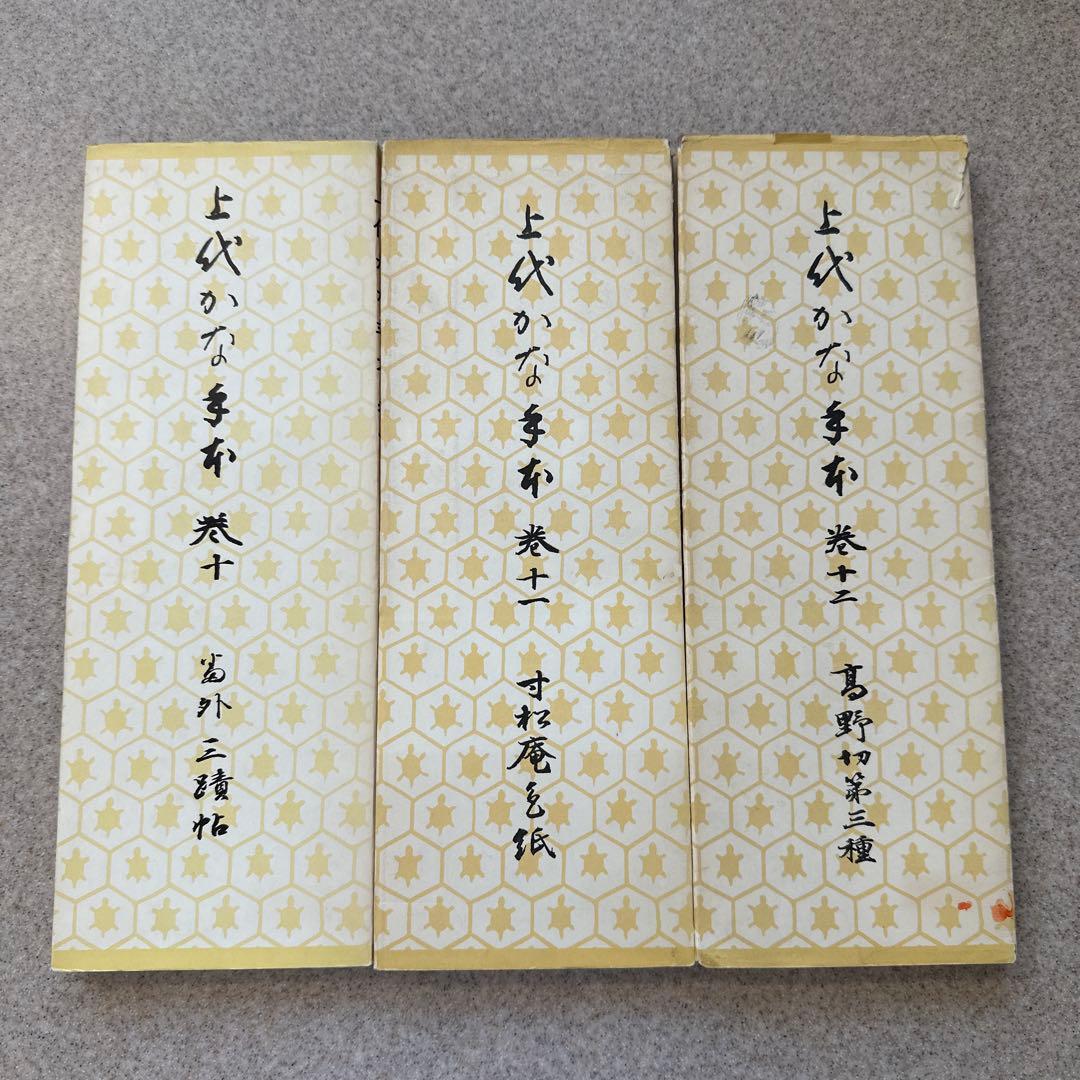 上代かな手本 巻十 番外 三蹟帖
上代かな手本 巻十一 寸松庵色紙
上代かな手本 巻十二 高野切第三種